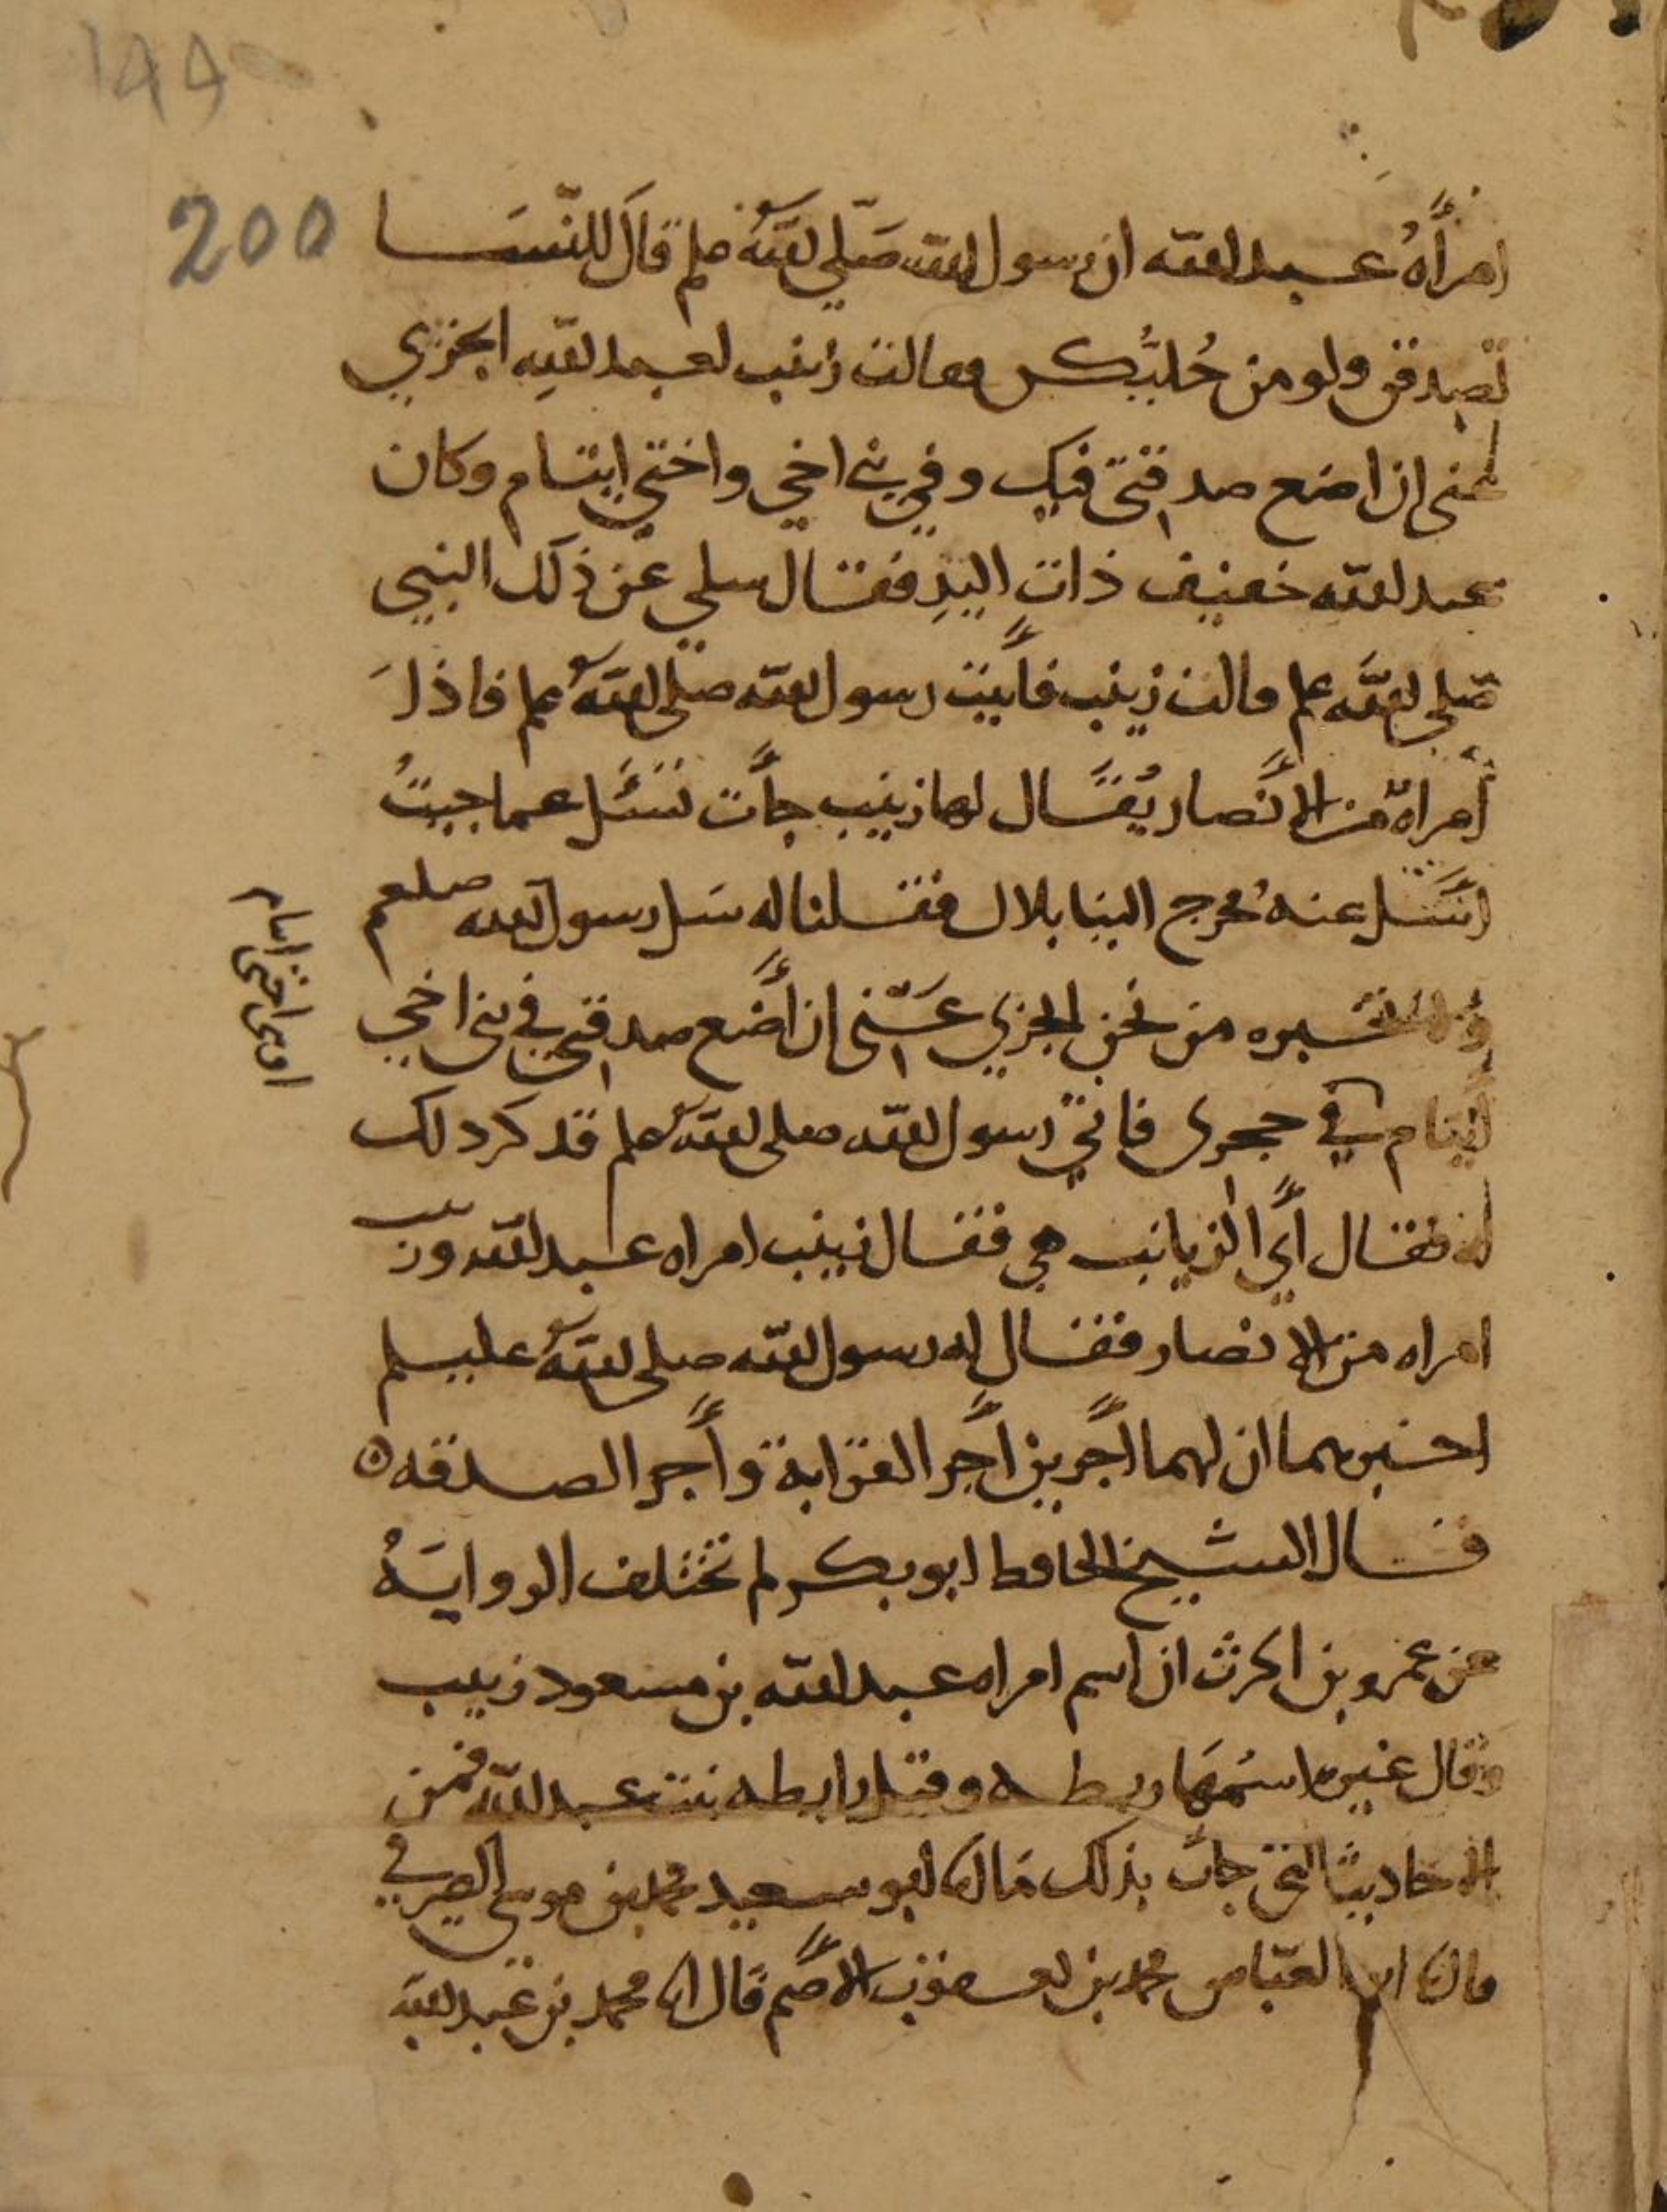 199
200
امرأهُ عبد الله ان رسول الله صَلّي اللهُ علم قالَ للنّسَا
تصدقن ولو من حُليّكن فقالت زينب لعبد اللهِ ايجزي
عني ان اضع صدقتي فيك وفي بني اخي واختي ايتام وكان
عبد الله خفيف ذاتِ اليدِ فقال سلي عن ذلك النبي
صّلي اللهُ علم قالت زينب فأتيت رسول الله صلى اللهُ علم فاذا
أمراةٌ من الأنصار يُقَال لها زينب جأت تَسَئَل عما جيتُ
اسَئَل عنهُ فخرج الينا بلال فقلنا له سَل رسول الله صلعم
ولا تخبره من نحن ايجزي عَنّي ان أضع صدقتي في بني اخي
ايتام في حجري فاتي رسول الله صلى اللهُ علم فذكر ذلك
له فقال أي الزيانب هي فقال زينب امراه عبد الله وزينب
امراه من الانصار فقال له رسول الله صلى اللهُ عليسلم
اخبرهما ان لهما أجرين أجر القرابة وأجر الصدقه ه
قال الشيخ الحافظ ابو بكر لم تختلف الروايَهُ
عن عمرو بن الحرث ان اسم امراه عبد الله بن مسعود زينب
وقال غيره اسمُهَا ريطه وقيل رايطه بنت عبد الله فمن
الاحاديث التي جات بذلك ما انا ابو سعيد محمد بن موسى الصيرفي
قال انا ابو العبّاس محمد بن يعقوب الأصم قال انا محمد بن عبد الله
او بني اختي ايتام